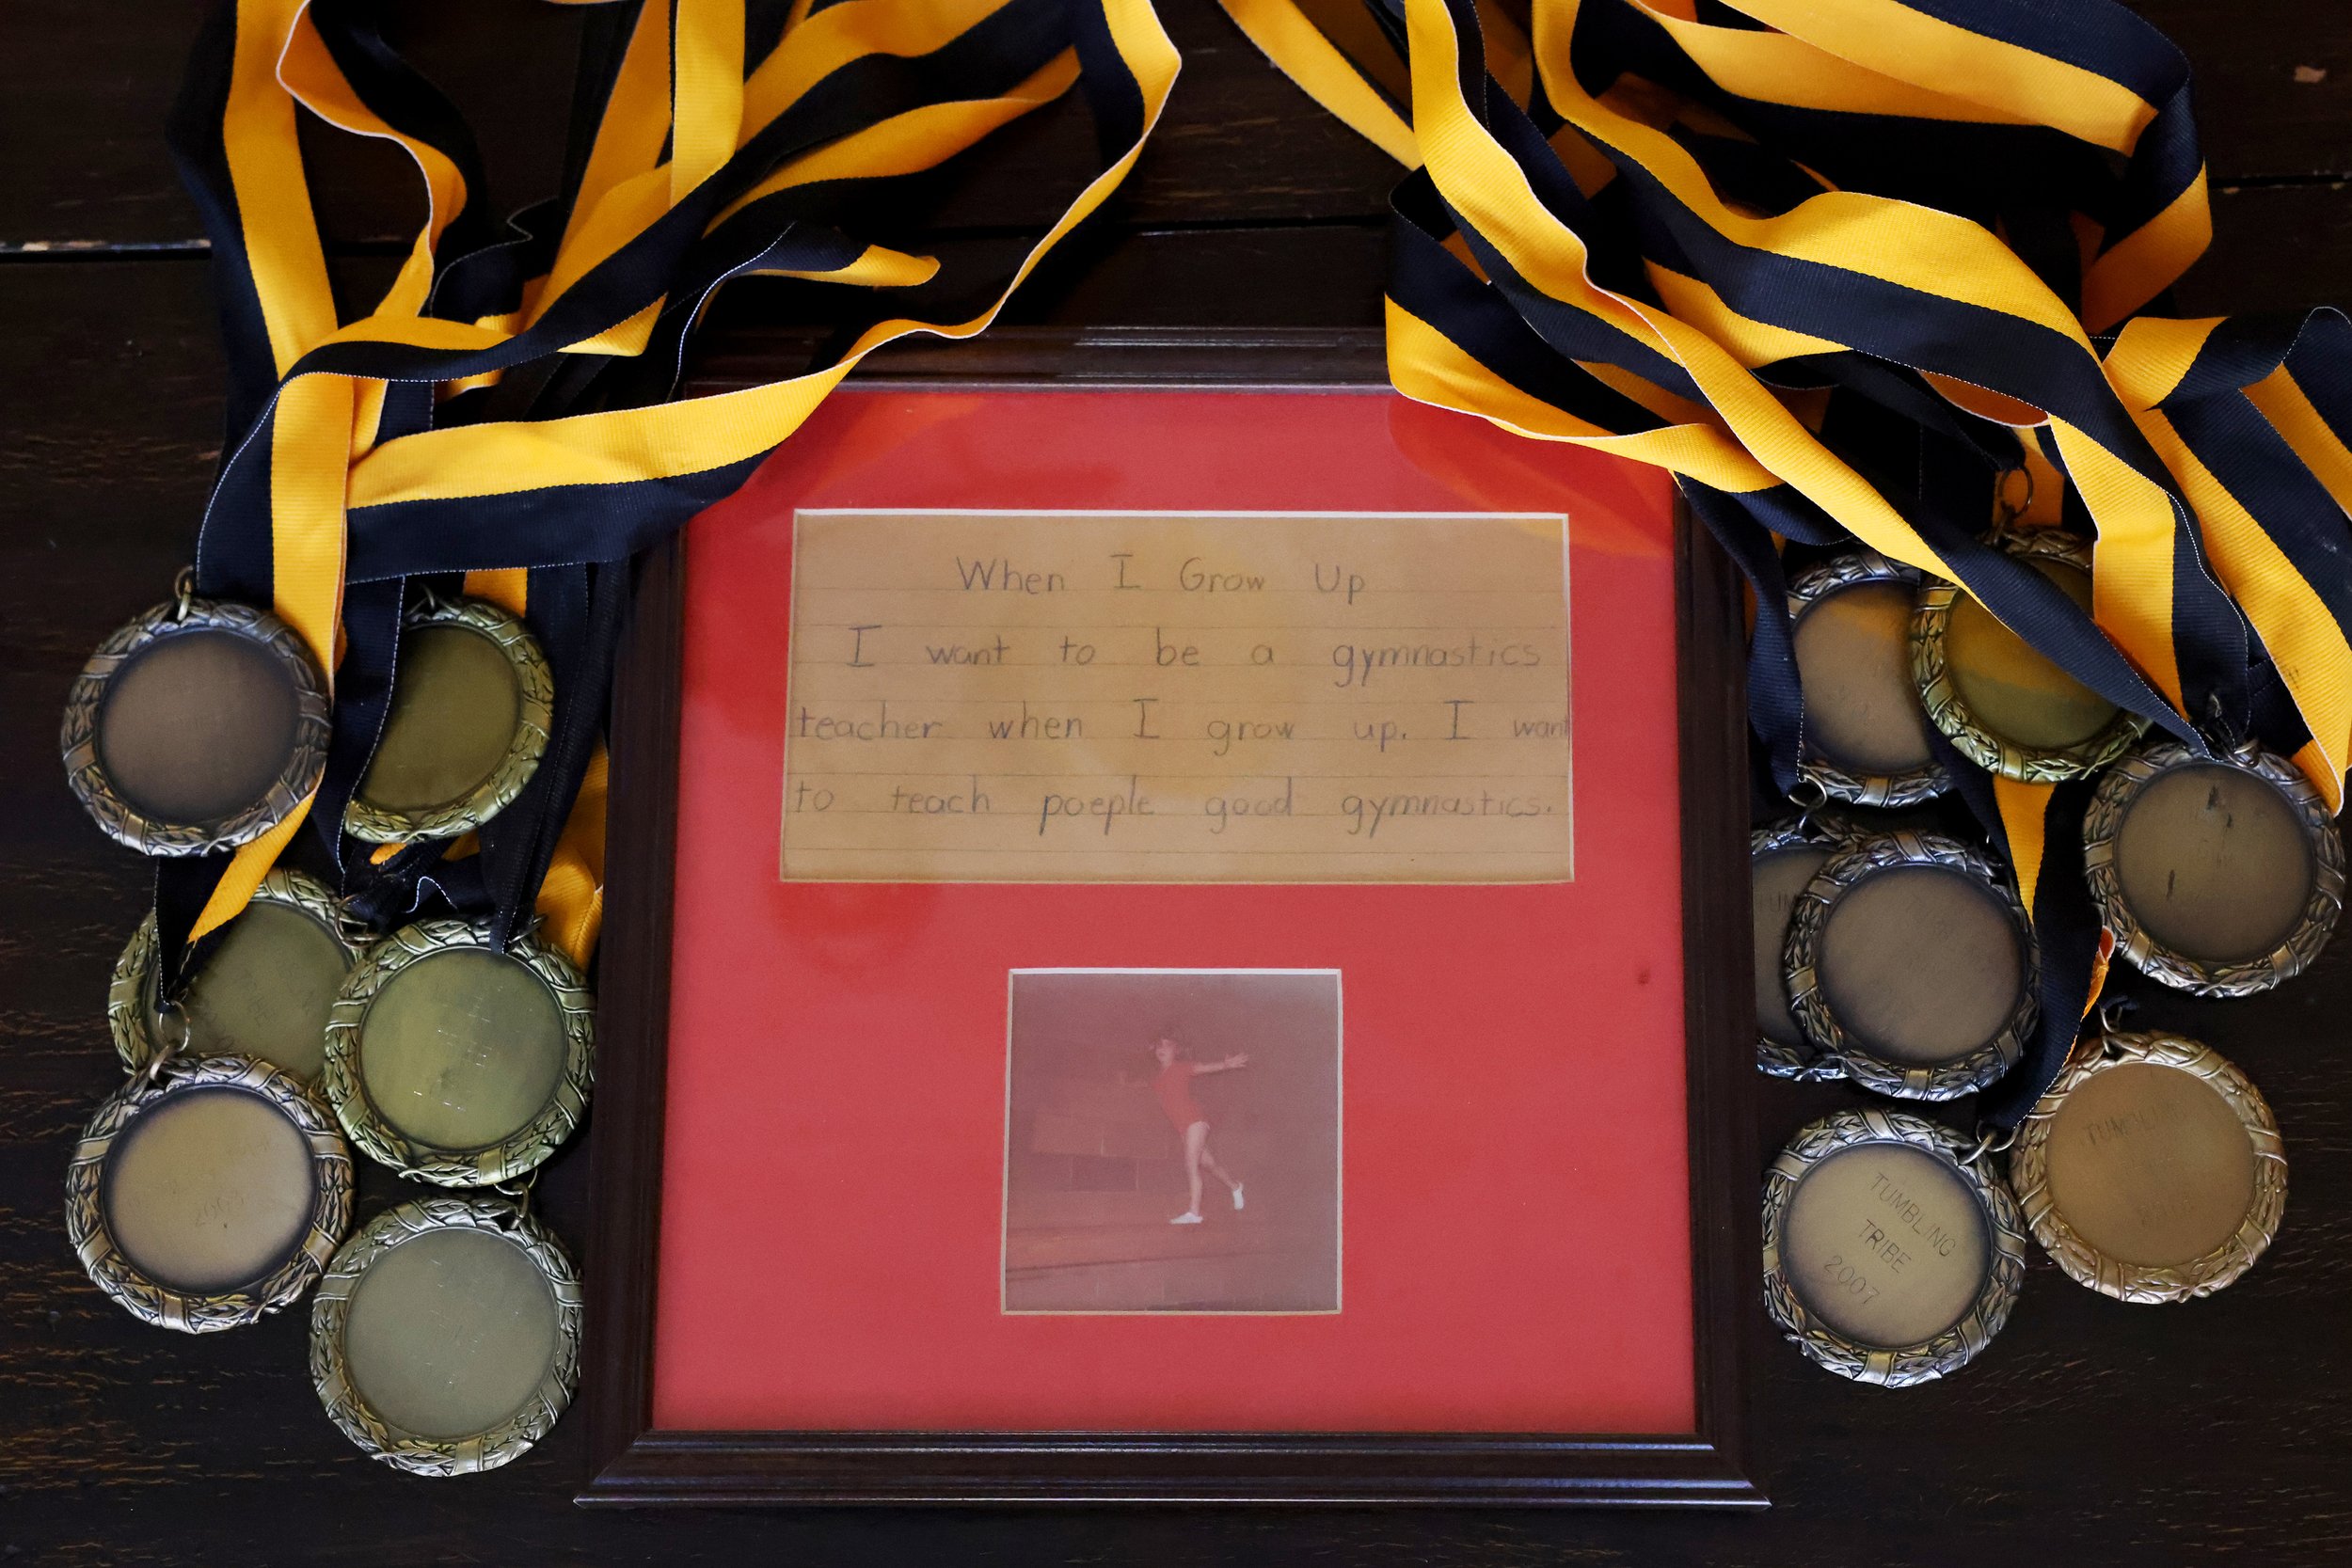 When I Grow Up
I want to be a gymnastics
teacher when I grow up. I want
to teach poeple good gymnastics.
TUMBLING
TUMBLING
TRIBE
2007